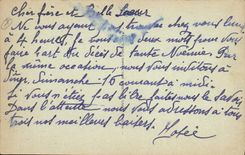 Cher frère et Belle Soeur
Ne vous ayant trouvé chez vous lundi
à 4 heures, je vous deux mots pour vous
faire part du décès de tante Noémie. Par
la même occasion, nous vous invitons à
dîner Dimanche 16 courant à midi
si vous n'êtes pas libre faites nous le savoir
Dans l'attente nous vous adressons à vous
trois nos meilleurs baisers.